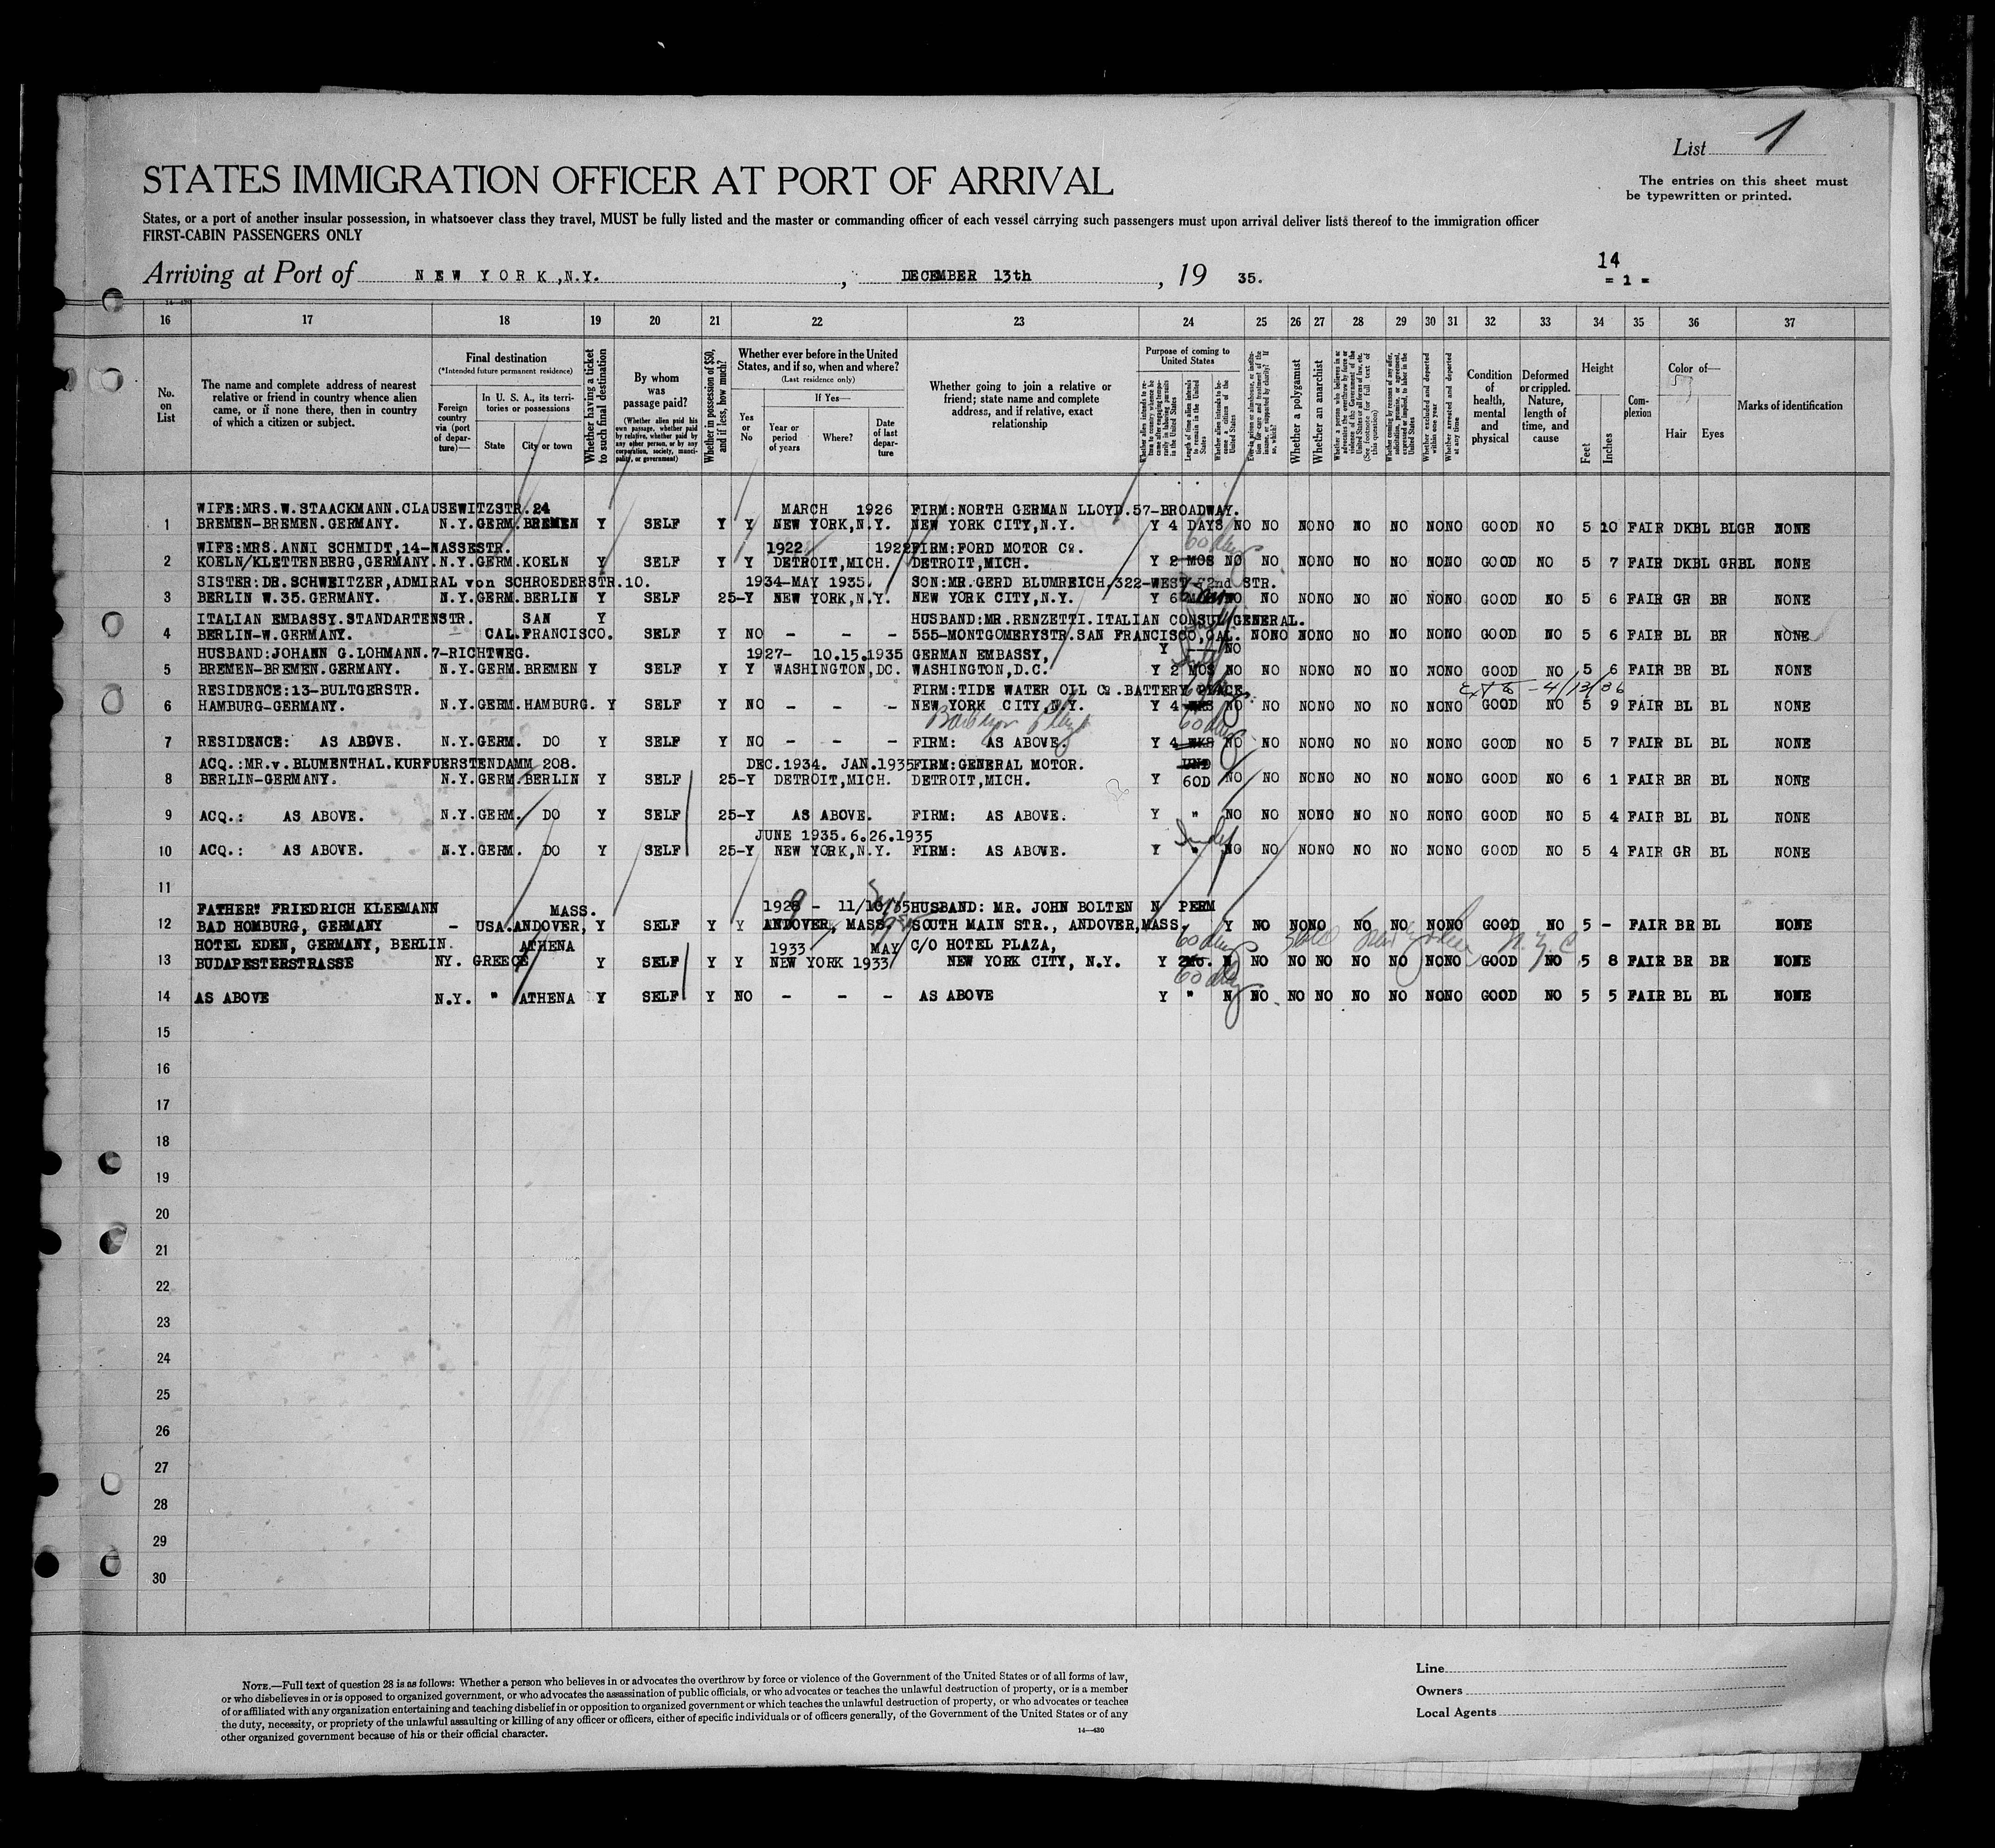 List 1
STATES IMMIGRATION OFFICER AT PORT OF ARRIVAL
The entries on this sheet must
be typewritten or printed.
States, or a port of another insular possession, in whatsoever class they travel, MUST be fully listed and the master or commanding officer of each vessel carrying such passengers must upon arrival deliver lists thereof to the immigration officer
FIRST-CABIN PASSENGERS ONLY
Arriving at Port of NEW YORK, N.Y. , DECEMBER 13th , 19 35.
14
= 1 =
16 17 18 19 20 21 22 23 24 25 26 27 28 29 30 31 32 33 34 35 36 37
No. on List
The name and complete address of nearest relative or friend in country whence alien came, or if none there, then in country of which a citizen or subject.
Final destination
(*Intended future permanent residence)
Foreign country via (port of departure)—
In U. S. A., its territories or possessions
State
City or town
Whether having a ticket to such final destination
By whom was passage paid?
(Whether alien paid his own passage, whether paid by relative, whether paid by any other person, or by any corporation, society, municipality, or government)
Whether in possession of $50, and if less, how much?
Whether ever before in the United States, and if so, when and where?
(Last residence only)
Yes or No
If Yes—
Year or period of years
Where?
Date of last departure
Whether going to join a relative or friend; state name and complete address, and if relative, exact relationship
Purpose of coming to United States
Whether alien intends to return to country whence he came after engaging temporarily in laboring pursuits in the United States
Length of time alien intends to remain in the United States
Whether alien intends to become a citizen of the United States
Whether a polygamist
Whether an anarchist
Whether excluded and deported within one year
Whether arrested and deported at any time
Condition of health, mental and physical
Deformed or crippled. Nature, length of time, and cause
Height
Feet
Inches
Complexion
Color of—
Hair
Eyes
Marks of identification
WIFE:MRS.W.STAACKMANN.CLAUSEWITZSTR.24 MARCH 1926 FIRM:NORTH GERMAN LLOYD.57-BROADWAY.
1 BREMEN-BREMEN.GERMANY. N.Y.GERM.BREMEN Y SELF Y Y NEW YORK,N.Y. NEW YORK CITY,N.Y. Y 4 DAYS NO NO NONO NO NO NONO GOOD NO 5 10 FAIR DKBL BLGR NONE
WIFE:MRS.ANNI SCHMIDT,14-NASSESTR. 1922 1922 FIRM:FORD MOTOR Co. 60 days
2 KOELN/KLETTENBERG,GERMANY.N.Y.GERM.KOELN Y SELF Y Y DETROIT,MICH. DETROIT,MICH. Y 2 MOS NO NO NONO NO NO NONO GOOD NO 5 7 FAIR DKBL GRBL NONE
SISTER:DR.SCHWEITZER,ADMIRAL von SCHROEDERSTR.10. 1934-MAY 1935. SON:MR.GERD BLUMREICH,322-WEST-72nd STR.
3 BERLIN W.35.GERMANY. N.Y.GERM.BERLIN Y SELF 25-Y NEW YORK,N.Y. NEW YORK CITY,N.Y. Y 6 NO NO NONO NO NO NONO GOOD NO 5 6 FAIR GR BR NONE
ITALIAN EMBASSY.STANDARTENSTR. SAN Y HUSBAND:MR.RENZETTI.ITALIAN CONSUL/GENERAL.
4 BERLIN-W.GERMANY. – CAL.FRANCISCO. SELF Y NO - - - 555-MONTGOMERYSTR.SAN FRANCISCO,CAL. NONO NONO NO NO NONO GOOD NO 5 6 FAIR BL BR NONE
HUSBAND:JOHANN G.LOHMANN.7-RICHTWEG. 1927- 10.15.1935 GERMAN EMBASSY, Y --- NO
5 BREMEN-BREMEN.GERMANY. N.Y.GERM.BREMEN Y SELF Y Y WASHINGTON,DC. WASHINGTON,D.C. Y 2 MOS NO NO NONO NO NO NONO GOOD NO 5 6 FAIR BR BL NONE
RESIDENCE:13-BULTGERSTR. FIRM:TIDE WATER OIL Co.BATTERY PLACE. Ext to - 4/13/36
6 HAMBURG-GERMANY. N.Y.GERM.HAMBURG. Y SELF Y NO - - - NEW YORK CITY,N.Y. Y 4 WKS NO NO NONO NO NO NONO GOOD NO 5 9 FAIR BL BL NONE
60 days
7 RESIDENCE: AS ABOVE. N.Y.GERM. DO Y SELF Y NO - - - FIRM: AS ABOVE. Y 4 WKS NO NO NONO NO NO NONO GOOD NO 5 7 FAIR BL BL NONE
ACQ.:MR.v.BLUMENTHAL.KURFUERSTENDAMM 208. DEC.1934. JAN.1935 FIRM:GENERAL MOTOR.
8 BERLIN-GERMANY. N.Y.GERM.BERLIN Y SELF 25-Y DETROIT,MICH. DETROIT,MICH. Y 60D NO NO NONO NO NO NONO GOOD NO 6 1 FAIR BR BL NONE
9 ACQ.: AS ABOVE. N.Y.GERM. DO Y SELF 25-Y AS ABOVE. FIRM: AS ABOVE. Y " NO NO NONO NO NO NONO GOOD NO 5 4 FAIR BL BL NONE
JUNE 1935.6.26.1935
10 ACQ.: AS ABOVE. N.Y.GERM. DO Y SELF 25-Y NEW YORK,N.Y. FIRM: AS ABOVE. Y " NO NO NONO NO NO NONO GOOD NO 5 4 FAIR GR BL NONE
11
FATHER: FRIEDRICH KLEEMANN MASS. 1928 - 11/10/35 HUSBAND: MR. JOHN BOLTEN N PERM
12 BAD HOMBURG, GERMANY - USA.ANDOVER, Y SELF Y Y ANDOVER, MASS. SOUTH MAIN STR., ANDOVER,MASS. Y NO NONO NO NO NONO GOOD NO 5 - FAIR BR BL NONE
HOTEL EDEN, GERMANY, BERLIN. ATHENA 1933 MAY C/O HOTEL PLAZA, 60 days N.Y.C.
13 BUDAPESTERSTRASSE NY. GREECE Y SELF Y Y NEW YORK 1933 NEW YORK CITY, N.Y. Y 2MO. N NO NO NO NO NO NONO GOOD NO 5 8 FAIR BR BR NONE
60 days
14 AS ABOVE N.Y. " ATHENA Y SELF Y NO - - - AS ABOVE Y " N NO NO NO NO NO NONO GOOD NO 5 5 FAIR BL BL NONE
15
16
17
18
19
20
21
22
23
24
25
26
27
28
29
30
NOTE.—Full text of question 28 is as follows: Whether a person who believes in or advocates the overthrow by force or violence of the Government of the United States or of all forms of law,
or who disbelieves in or is opposed to organized government, or who advocates the assassination of public officials, or who advocates or teaches the unlawful destruction of property, or is a member
of or affiliated with any organization entertaining and teaching disbelief in or opposition to organized government or which teaches the unlawful destruction of property, or who advocates or teaches
the duty, necessity, or propriety of the unlawful assaulting or killing of any officer or officers, either of specific individuals or of officers generally, of the Government of the United States or of any
other organized government because of his or their official character.
14—430
Line
Owners
Local Agents